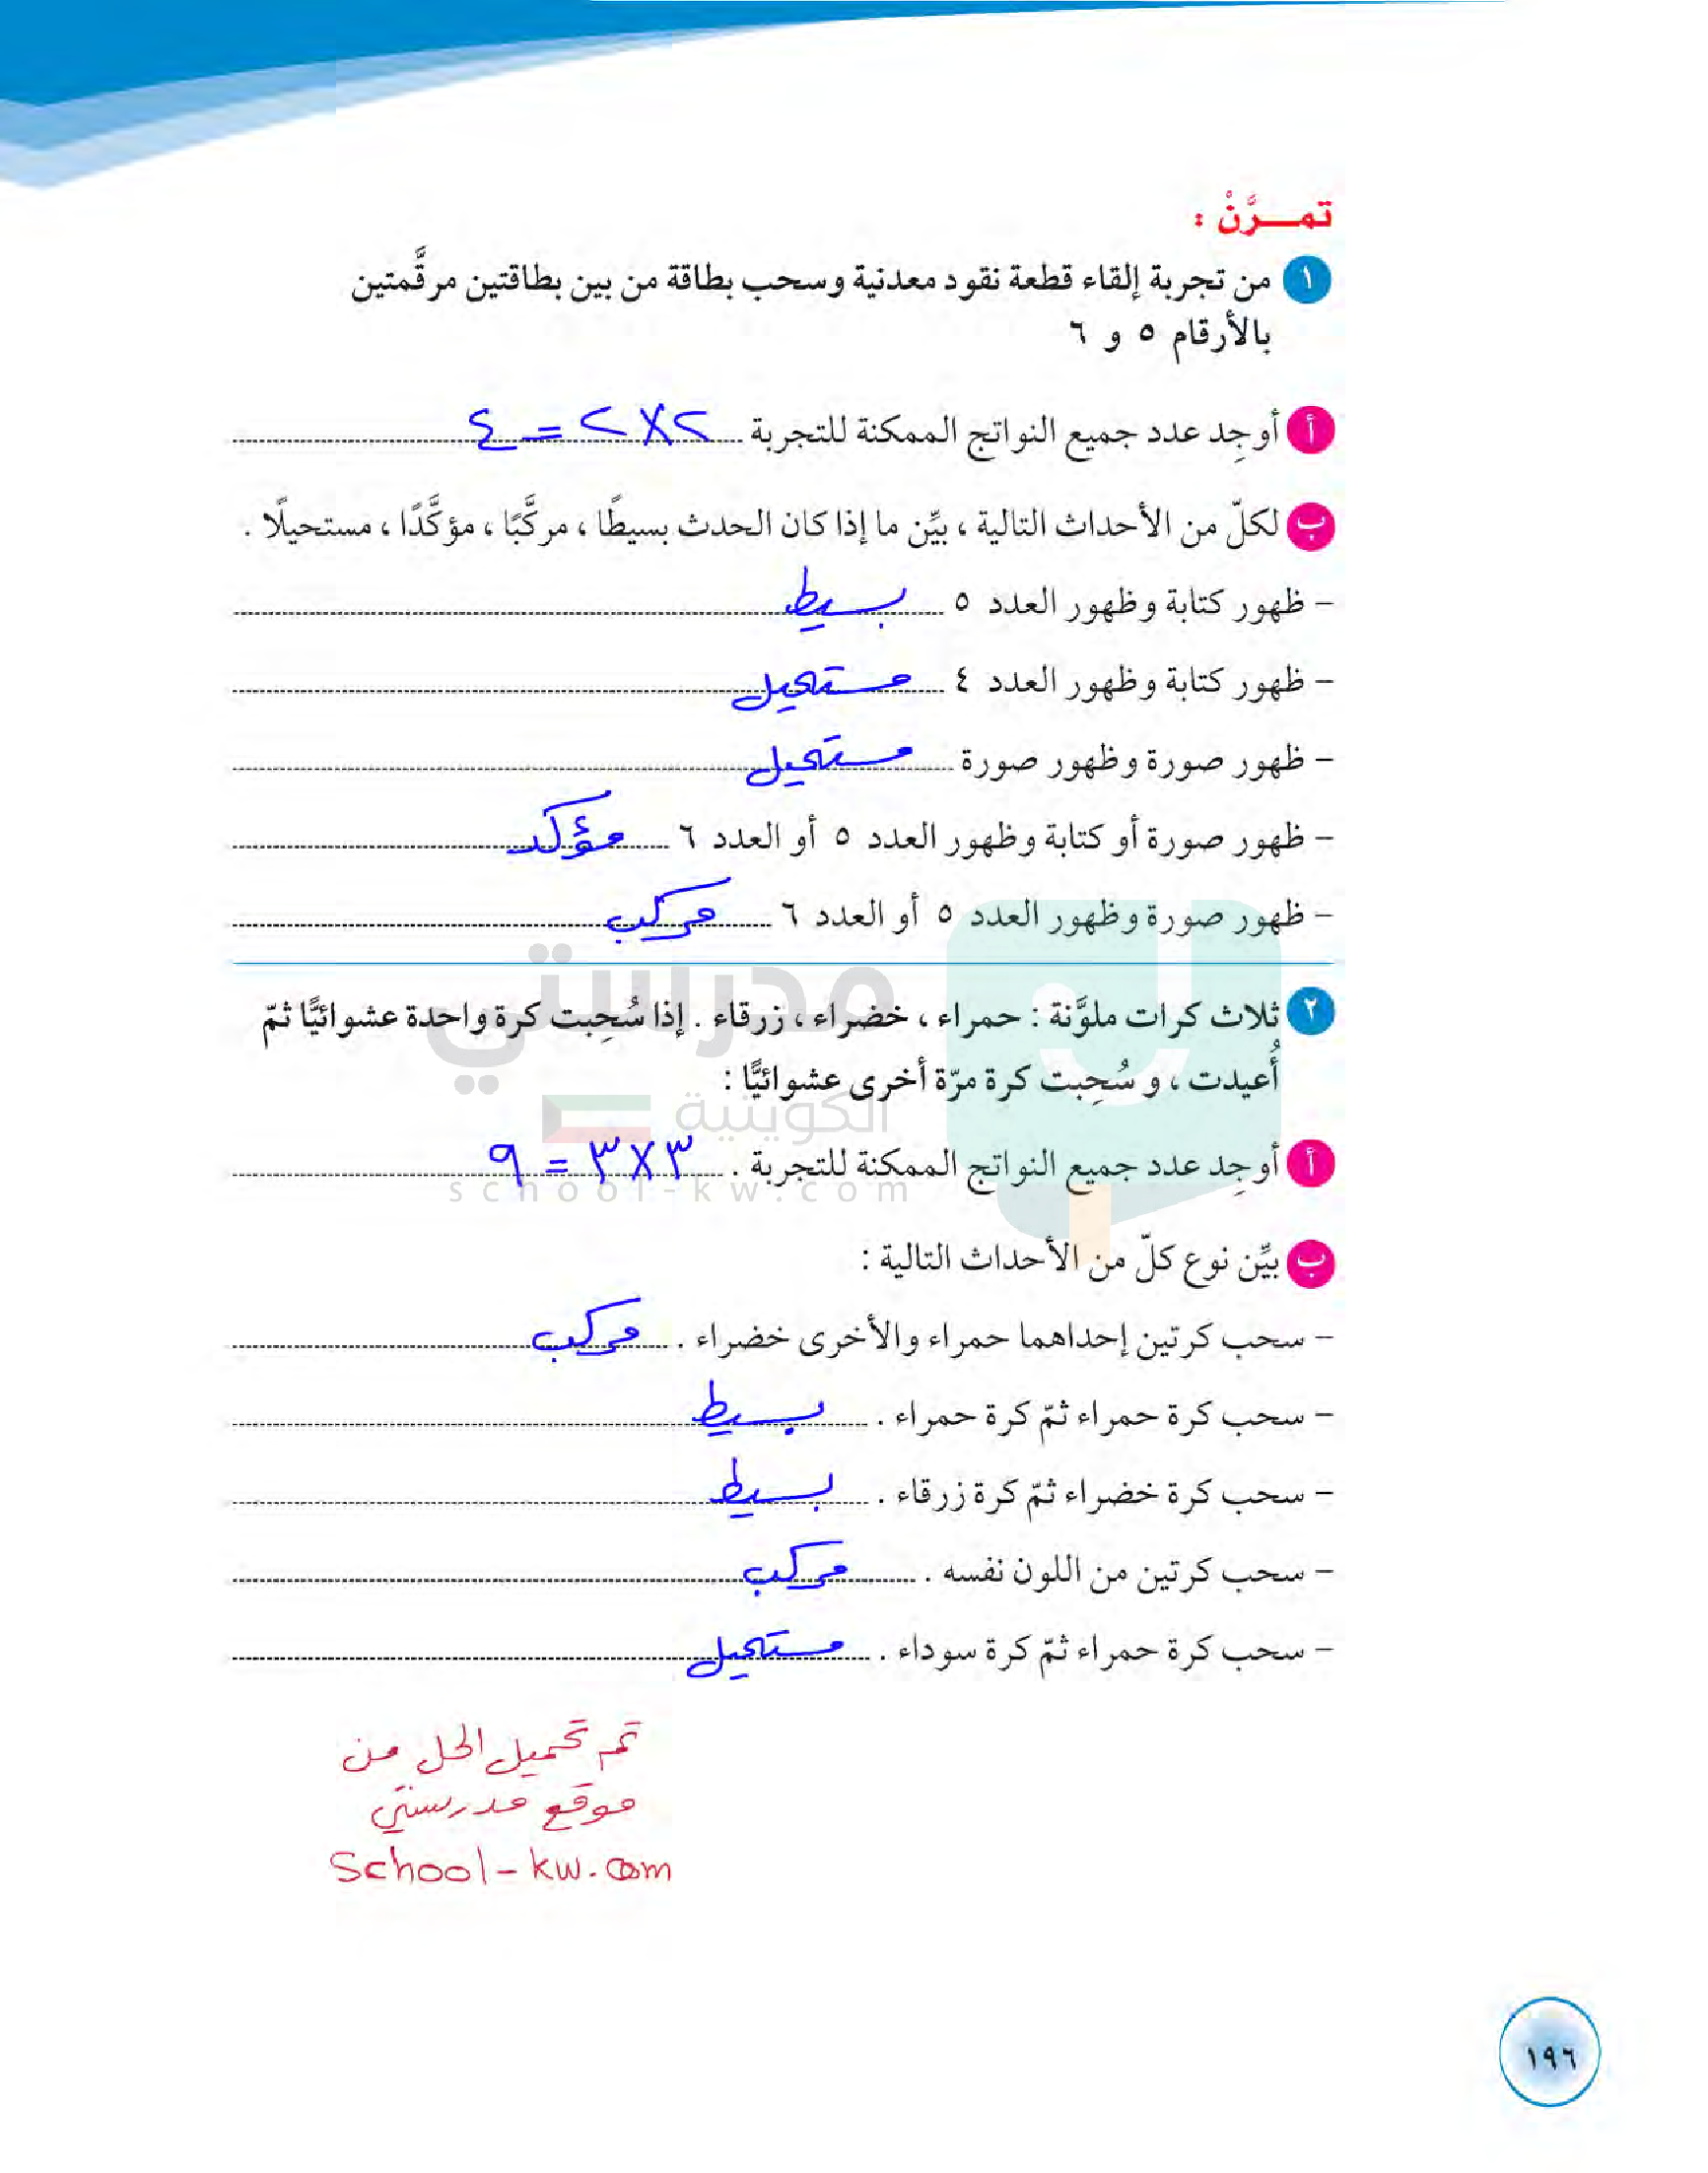 تمـــرَّنْ :
١ من تجربة إلقاء قطعة نقود معدنية وسحب بطاقة من بين بطاقتين مرقَّمتين
بالأرقام ٥ و ٦
أ أوجِد عدد جميع النواتج الممكنة للتجربة ٢ × ٢ = ٤
ب لكلّ من الأحداث التالية ، بيِّن ما إذا كان الحدث بسيطًا ، مركَّبًا ، مؤكَّدًا ، مستحيلًا .
– ظهور كتابة وظهور العدد ٥ بسيط
– ظهور كتابة وظهور العدد ٤ مستحيل
– ظهور صورة وظهور صورة مستحيل
– ظهور صورة أو كتابة وظهور العدد ٥ أو العدد ٦ مؤكد
– ظهور صورة وظهور العدد ٥ أو العدد ٦ مركب
مدرستي
٢ ثلاث كرات ملوَّنة : حمراء ، خضراء ، زرقاء . إذا سُحِبت كرة واحدة عشوائيًّا ثمّ
أُعيدت ، و سُحِبت كرة مرّة أخرى عشوائيًّا :
الكويتية
أ أوجِد عدد جميع النواتج الممكنة للتجربة . ٣ × ٣ = ٩
school-kw.com
ب بيِّن نوع كلّ من الأحداث التالية :
– سحب كرتين إحداهما حمراء والأخرى خضراء . مركب
– سحب كرة حمراء ثمّ كرة حمراء . بسيط
– سحب كرة خضراء ثمّ كرة زرقاء . بسيط
– سحب كرتين من اللون نفسه . مركب
– سحب كرة حمراء ثمّ كرة سوداء . مستحيل
تم تحميل الحل من
موقع مدرستي
School-kw.com
١٩٦